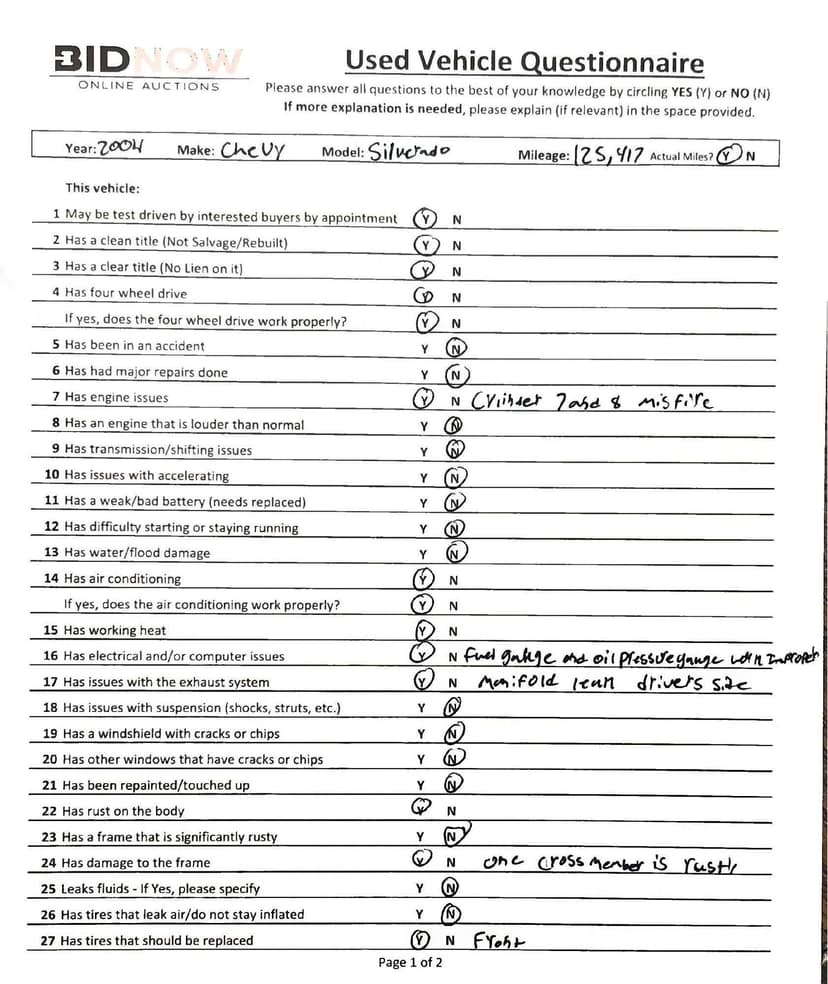 BIDNOW
ONLINE AUCTIONS
Used Vehicle Questionnaire
Please answer all questions to the best of your knowledge by circling YES (Y) or NO (N)
If more explanation is needed, please explain (if relevant) in the space provided.
Year: 2004 Make: Chevy Model: Silverado Mileage: 125,417 Actual Miles? Y N
This vehicle:
1 May be test driven by interested buyers by appointment Y N
2 Has a clean title (Not Salvage/Rebuilt) Y N
3 Has a clear title (No Lien on it) Y N
4 Has four wheel drive Y N
If yes, does the four wheel drive work properly? Y N
5 Has been in an accident Y N
6 Has had major repairs done Y N
7 Has engine issues Y N Cylinder 7 and 8 misfire
8 Has an engine that is louder than normal Y N
9 Has transmission/shifting issues Y N
10 Has issues with accelerating Y N
11 Has a weak/bad battery (needs replaced) Y N
12 Has difficulty starting or staying running Y N
13 Has water/flood damage Y N
14 Has air conditioning Y N
If yes, does the air conditioning work properly? Y N
15 Has working heat Y N
16 Has electrical and/or computer issues Y N Fuel gauge and oil pressure gauge work
17 Has issues with the exhaust system Y N Manifold leak drivers side
18 Has issues with suspension (shocks, struts, etc.) Y N
19 Has a windshield with cracks or chips Y N
20 Has other windows that have cracks or chips Y N
21 Has been repainted/touched up Y N
22 Has rust on the body Y N
23 Has a frame that is significantly rusty Y N
24 Has damage to the frame Y N one cross member is rusty
25 Leaks fluids - If Yes, please specify Y N
26 Has tires that leak air/do not stay inflated Y N
27 Has tires that should be replaced Y N Front
Page 1 of 2